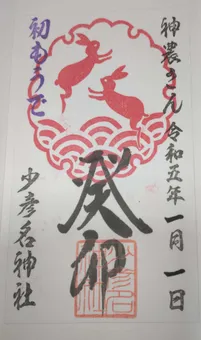 神農さん 令和五年 一月 一日
癸卯
初もうで
少彦名神社